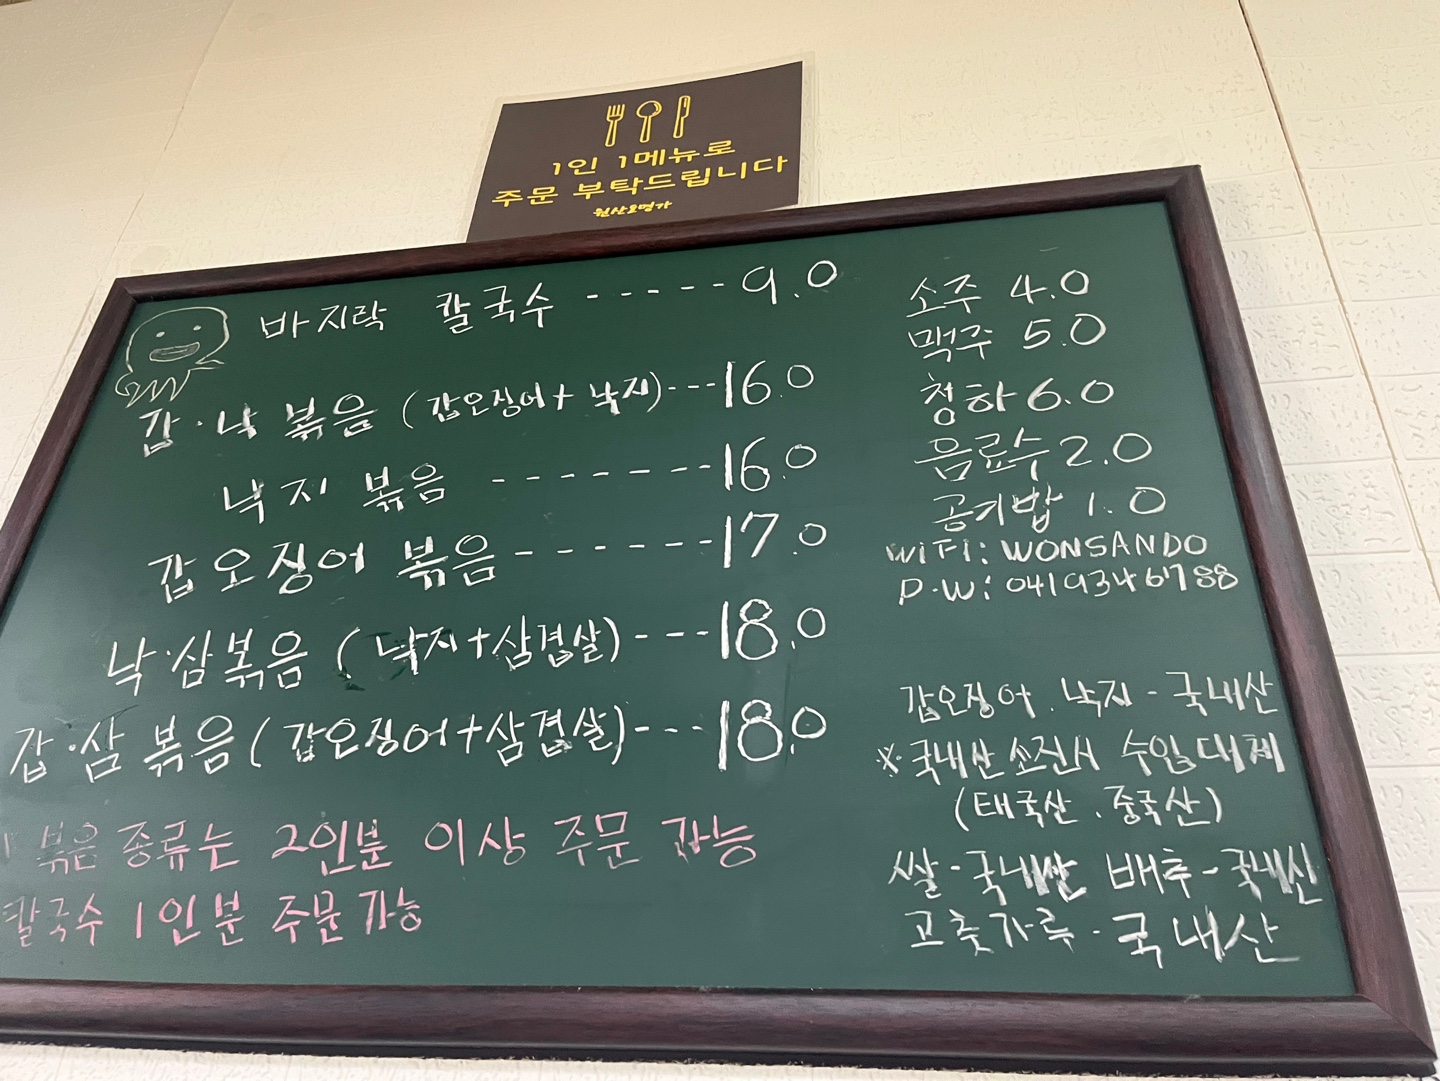 1인 1메뉴로
주문 부탁드립니다
원산도명가
바지락 칼국수 ----- 9.0
갑·낙 볶음 (갑오징어+낙지)---16.0
낙지 볶음 -------16.0
갑오징어 볶음------17.0
낙·삼볶음 (낙지+삼겹살)---18.0
갑·삼 볶음(갑오징어+삼겹살)---18.0
볶음 종류는 2인분 이상 주문 가능
칼국수 1인분 주문가능
소주 4.0
맥주 5.0
청하 6.0
음료수 2.0
공기밥 1.0
WiFi: WONSANDO
P.W: 0419346788
갑오징어.낙지-국내산
※국내산 소진시 수입대체
(태국산.중국산)
쌀-국내산 배추-국내산
고춧가루-국내산